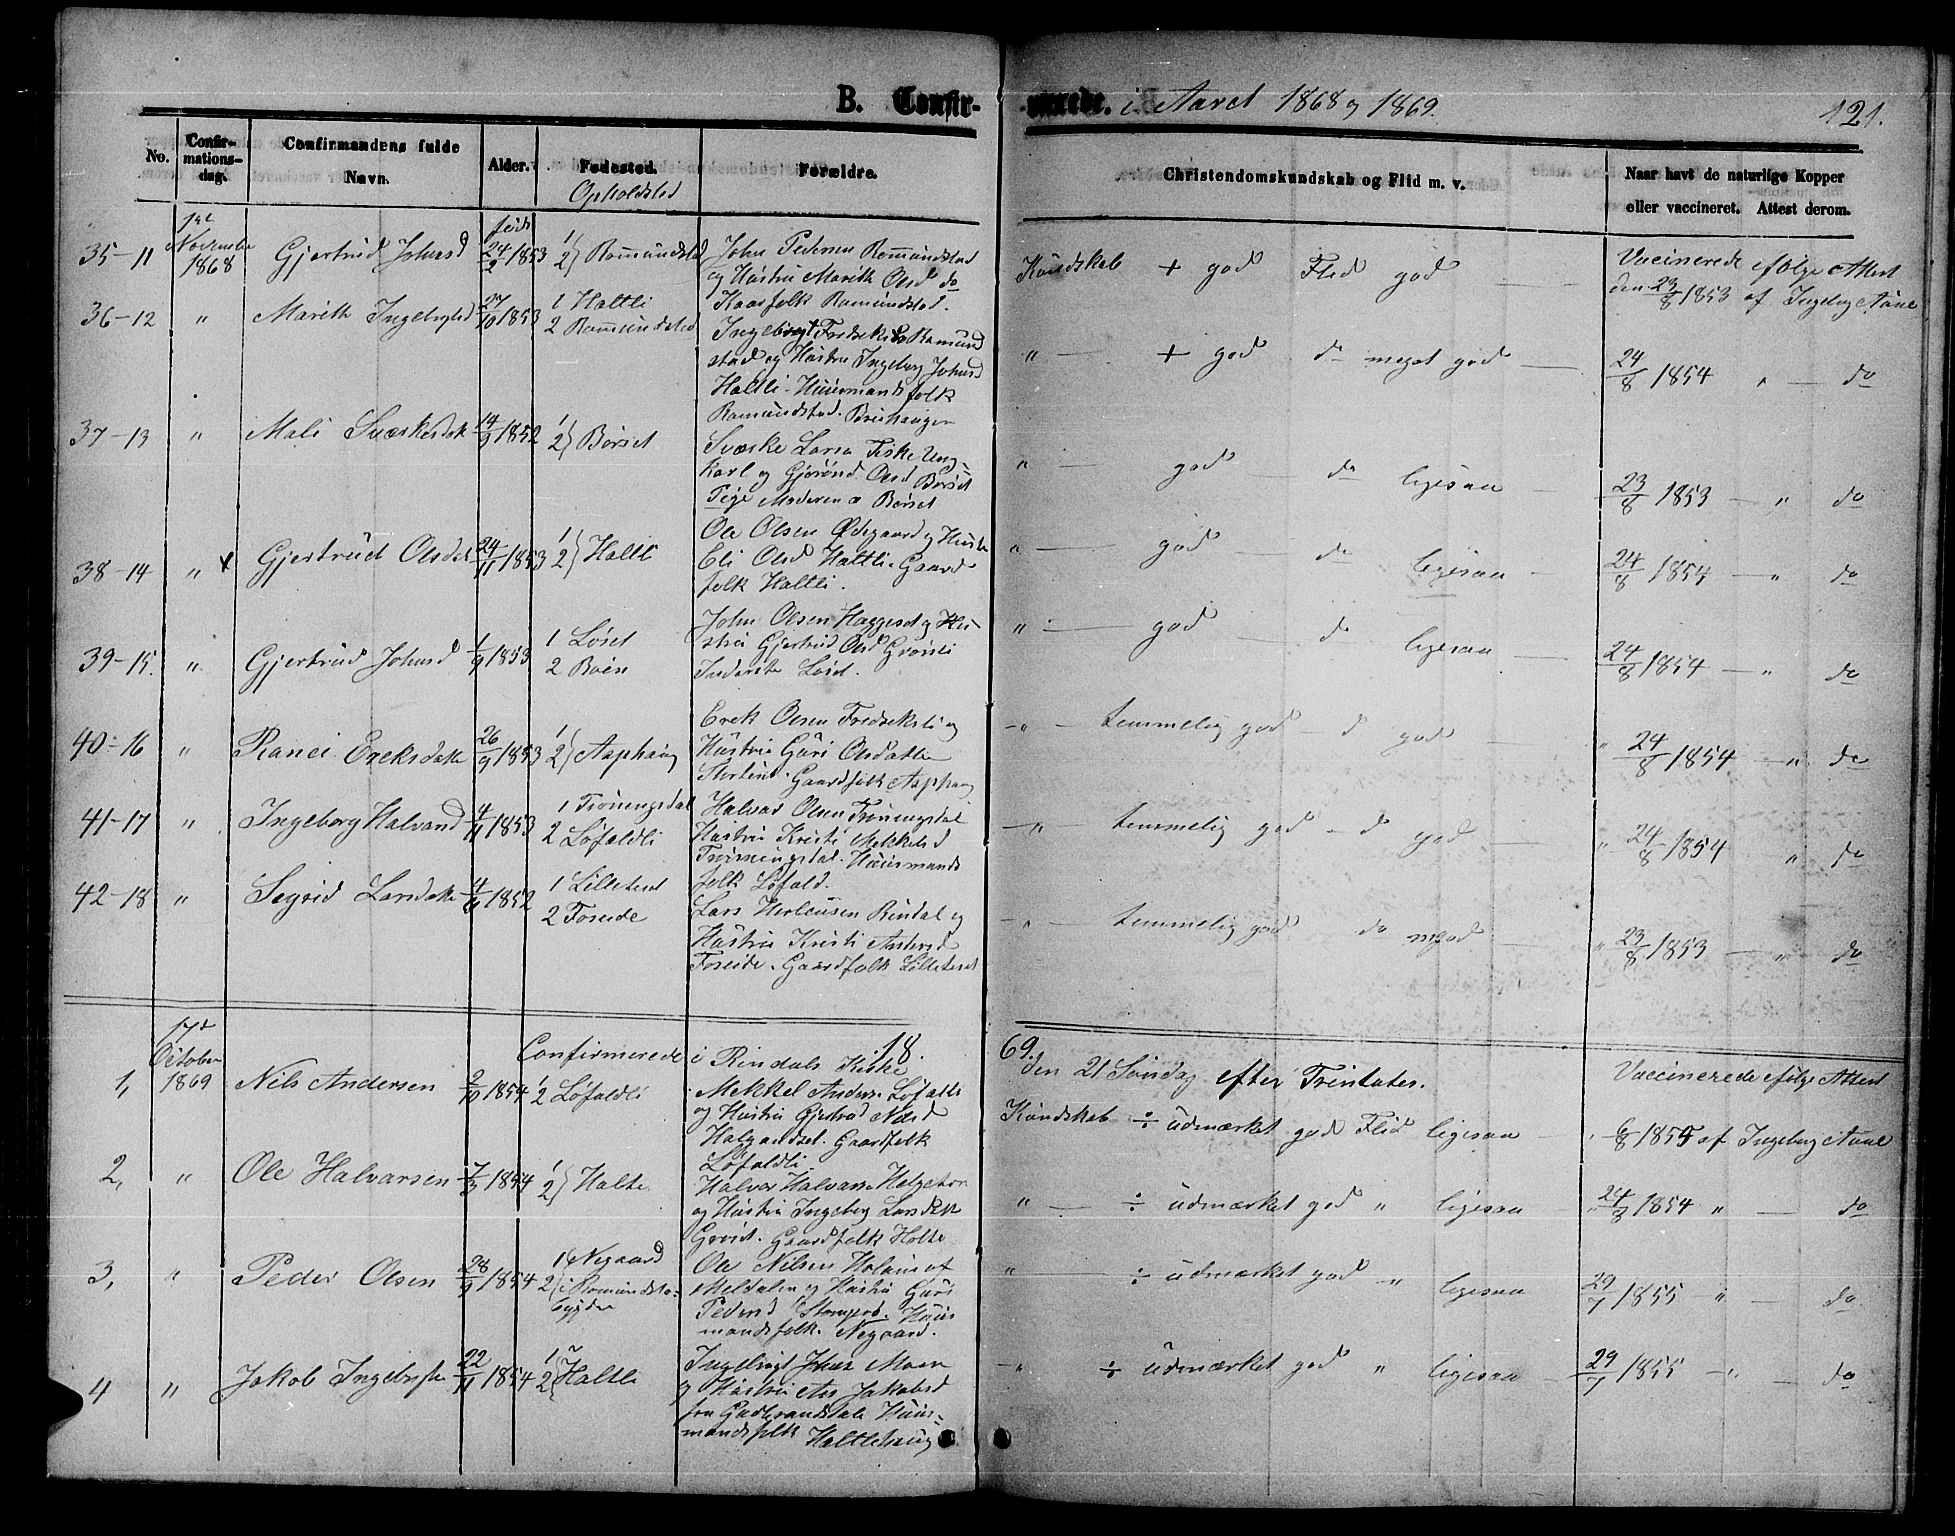 B. Confir-
-merede. i Aaret 1868 og 1869.
121.
No.
Confir-
mations-
dag.
Confirmandens fulde
Navn.
Alder.
Fødested.
Opholdsted
Forældre.
Christendomskundskab og Flid m. v.
Naar havt de naturlige Kopper
eller vaccineret. Attest derom.
35-11
1ste November 1868
Gjertrud Johnsd
født 24/2 1853
1 2} Romundstad
John Pedersen Romundstad
og Hustru Marith Olsd do
Kaarfolk Romundstad.
Kundskab + god Flid god
Vaccinerede ifølge Attest
den 23/8 1853 af Ingeborg Aune
36-12
"
Marith Ingebrigtsd
27/10 1853
1 Haltli
2 Romundstad
Ingebrigt Fredriksen Romund
stad og Hustru Ingeborg Johnsd
Haltli. Huusmandsfolk
Romundstad.
" + god do meget god
24/8 1854 " do
37-13
"
Mali
14/9 1852
1 2} Børset
Larsen Fiske Ung-
karl og Olsd Børset
Pige Moderen a Børset
" god do ligesaa
23/8 1853 " do
38-14
" x
Gjertrud Olsdat
24/11 1853
1 2} Haltli
Ole Olsen Ødegaard og Hustru
Eli Olsd Haltli. Gaard
folk Haltli.
" god do ligesaa
24/8 1854 " do
39-15.
"
Gjertrud Johnsd
1/9 1853
1 Løset
2 Boen
John Olsen og Hu-
stru Gjertrud Olsd Grønli
Inderste Løset.
" god do ligesaa
24/8 1854 " do
40-16
"
Ranei Ereksdatt
26/9 1853
1 2} Asphaug
Erek Olsen Fredriksli og
Hustru Guri Olsdatter
Gaardfolk Asphaug
" temmelig god d god
" 24/8 1854 " do
41-17
"
Ingeborg Halvarsd
4/11 1853
1 Trøningsdal
2 Løfaldli
Halvar Olsen Trøningsdal
Hustru Kristi Mekkelsd
Trøningsdal. Huusmands
folk Løfald.
" temmelig god d god
" 24/8 1854 " do
42-18
"
Segrid Larsdatt
1852
1 Lilleteset
2 Foseide
Lars Rindal og
Hustru Kristi Andersd
Foseide. Gaardfolk Lilleteset
" temmelig god do mgod
" 23/8 1853 " do
18 69.
Confirmerede i Rindals Kirke
den 21 Søndag efter Trinitates.
1,
17de October 1869
Nils Andersen
2/10 1854
1 2 Løfaldli
Mekkel Anders. Løfaldli
og Hustru Gjertrud Nilsd
Halgundset. Gaardfolk
Løfaldli.
Kundskab ÷ udmærket god Flid ligesaa
Vaccinerede ifølge Attest
6/8 1855 af Ingeborg Aune
2,
"
Ole Halvarsen
7/3 1854
1 2} Holte
Halvor Halvars. Helgeton
og Hustru Ingeborg Larsdatt
Gaardfolk Holte
" ÷ udmærket god " ligesaa
" 24/8 1854 " do
3,
"
Peder Olsen
28/9 1854
1 2} Negaard
i Romundsta-
bygden
Ole Nilsen
Meldalen og Hustru Guri
Pedersd Huus
mandsfolk. Negaard.
" ÷ udmærket god " ligesaa
29/7 1855 " do
4
"
Jakob Ingebrigts
22/11 1854
1 2} Haltli
Ingebrigt Moen
og Hustru Jakobsd
fra Gudbrandsdalen Huus-
mandsfolk
Haltlihaug
" ÷ udmærket god " ligesaa
29/7 1855 " do